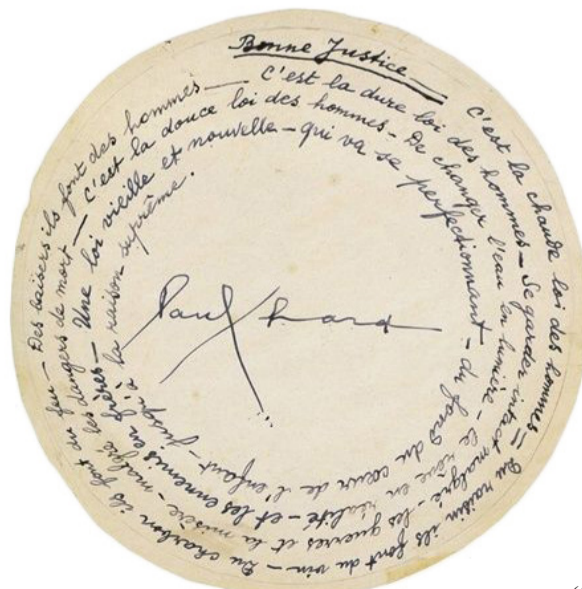 Bonne Justice
C'est la chaude loi des hommes = Du raisin ils font du vin — Du charbon ils font du feu — Des baisers ils font des hommes —
C'est la dure loi des hommes — Se garder intact malgré — les guerres et la misère — malgré les dangers de mort —
C'est la douce loi des hommes — De changer l'eau en lumière — le rêve en réalité — et les ennemis en frères —
Une loi vieille et nouvelle — qui va se perfectionnant — du fond du cœur de l'enfant — jusqu'à la raison suprême.
Paul Eluard